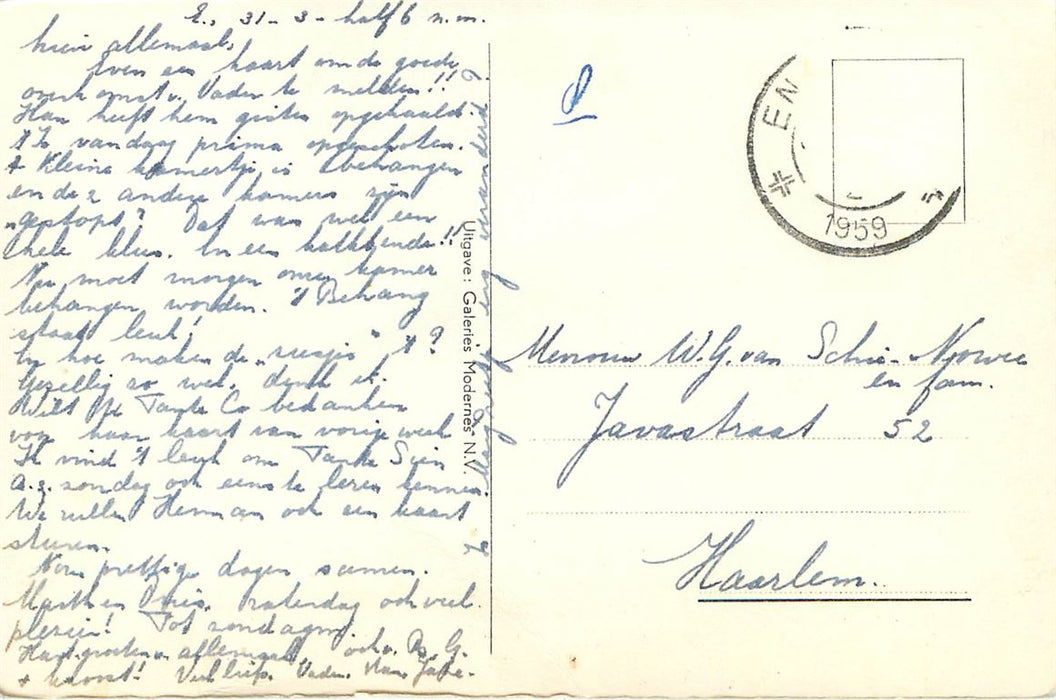 E., 31-3-half 6 n.m.
hier allemaal,
Even een kaart om de goede
overkomst v. Vader te melden!!
Han heeft hem gisten opgehaald.
't Is vandaag prima opgeschoten.
't Kleine kamertje is behangen
en de 2 andere kamers zijn
"gestopt". Dat was wel een
hele klus. En een kalkbende!!
Nu moet morgen onze kamer
behangen worden. 't Behang
staat leuk!
En hoe maken de " " 't?
Gezellig zo wel, denk ik.
Wilt U Tante Co bedanken
voor haar kaart van vorige week
Ik vind 't leuk om Tante Sien
a.s. zondag ook eens te leren kennen.
We zullen Herman ook een kaart
sturen.
Nou prettige dagen samen.
Marth en Dries, zaterdag ook veel
plezier! Tot zondagav.
Hart. groeten v. allemaal, ook v. G.
+ Veel liefs, Vader, Han,
erg veranderd?
Uitgave: Galeries Modernes N.V.
EM
1959
Mevrouw W.G. van Schie-
en fam.
Javastraat 52
Haarlem.